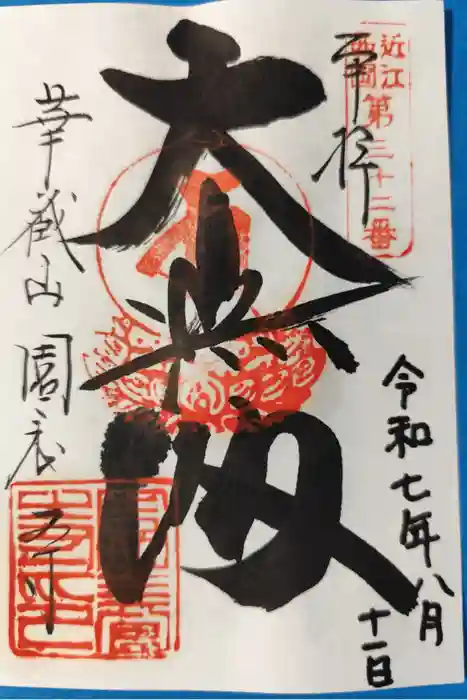 近江
西国
第三十二番
奉拝
大悲閣
華蔵山 園養寺
令和七年八月
十一日